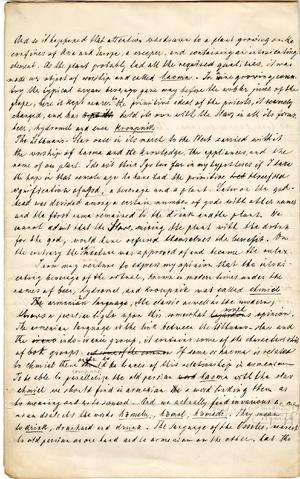 And so it happened that attention was drawn to a plant growing on the
confines of Asia and Europe, a creeper, and containing an intoxicating
element. As the plant probably had all the required qualities, it was
made an object of worship and called haoma. In wine growing coun-
try the typical aryan beverage gave way before the sober juice of the
grape, here it kept nearer the primitive ideal of the priests, it scarcely
changed, and has held its own with the Slavs in all its forms
beer, hydromel and even
The Lithuano-Slav race in its march to the West carried with it
the worship of haoma and the knowledge, the appliances, and the
name of one plant. I do not think I go too far in my hypotheses if I have
the hope in that remote age to have had the primitive threefold
signification of a god, a beverage and a plant. Later on the god-
head was divided among a certain number of gods with other names
and the first name remained to the drink and the plant. We
cannot admit that the Slavs, mixing the plant with the drink
for the god, would have refused themselves the beverage. On
the contrary the mixture was approved of and became the rule.
I even may venture to express my opinion that the intoxi-
cating beverage of the was called chmiel
names of beer, hydromel, and
The Armenian language, the classic as well as the modern,
throws a peculiar light upon this somewhat novel opinion.
The armenian language is the link between the Lithuano-Slav and
the indo-iranic group, it contains some of the characteristics
of both groups. If some haoma is related
to chmiel then the traces of this relationship in armenian
To be able to parallelize the old persian haoma with the slav
chmiel we should find in armenian the a word linking them as
to meaning and also sound. And we actually find
the words
to drink, drunkard and drunk. The language of the Ossetes, nearest
to old persian on one hand and to armenian on the other, has the